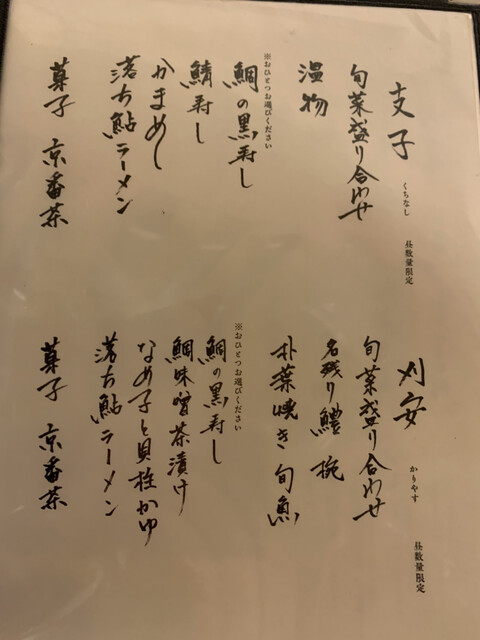 支子
くちなし
昼数量限定
旬菜盛り合わせ
温物
※おひとつお選びください
鯛の黒寿し
鯖寿し
かまめし
落ち鮎ラーメン
菓子 京番茶
刈安
かりやす
昼数量限定
旬菜盛り合わせ
名残り鱧 椀
朴葉焼き 旬魚
※おひとつお選びください
鯛の黒寿し
鯛味噌茶漬け
なめ子と貝柱かゆ
落ち鮎ラーメン
菓子 京番茶